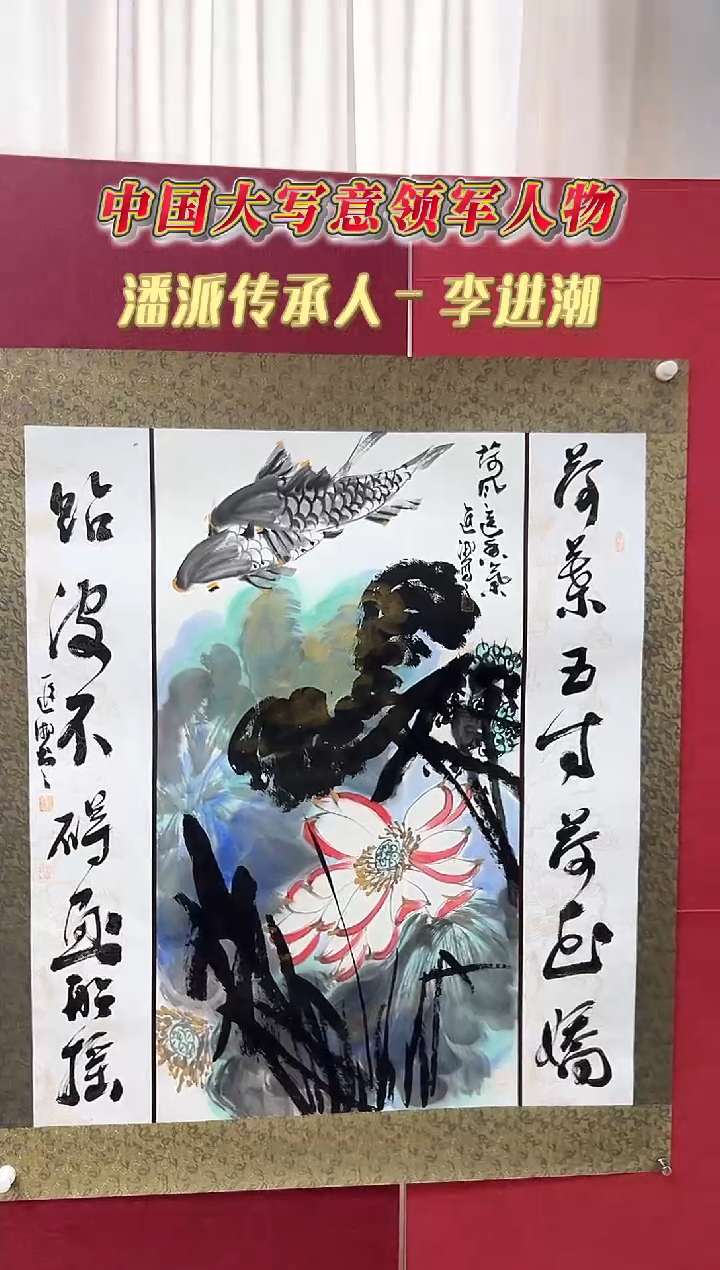 中国大写意领军人物
潘派传承人 - 李进潮
荷葉五寸荷花嬌
荷风送香氣
進潮写
贴波不碍画船摇
進潮